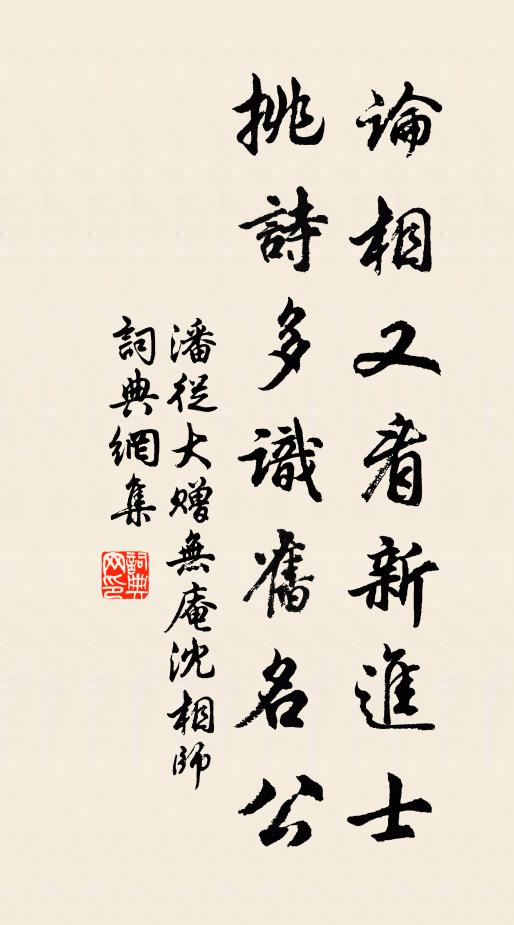 論相又看新進士
挑詩多識舊名公
潘從大贈無庵沈相師
詞典網集
詞典網印